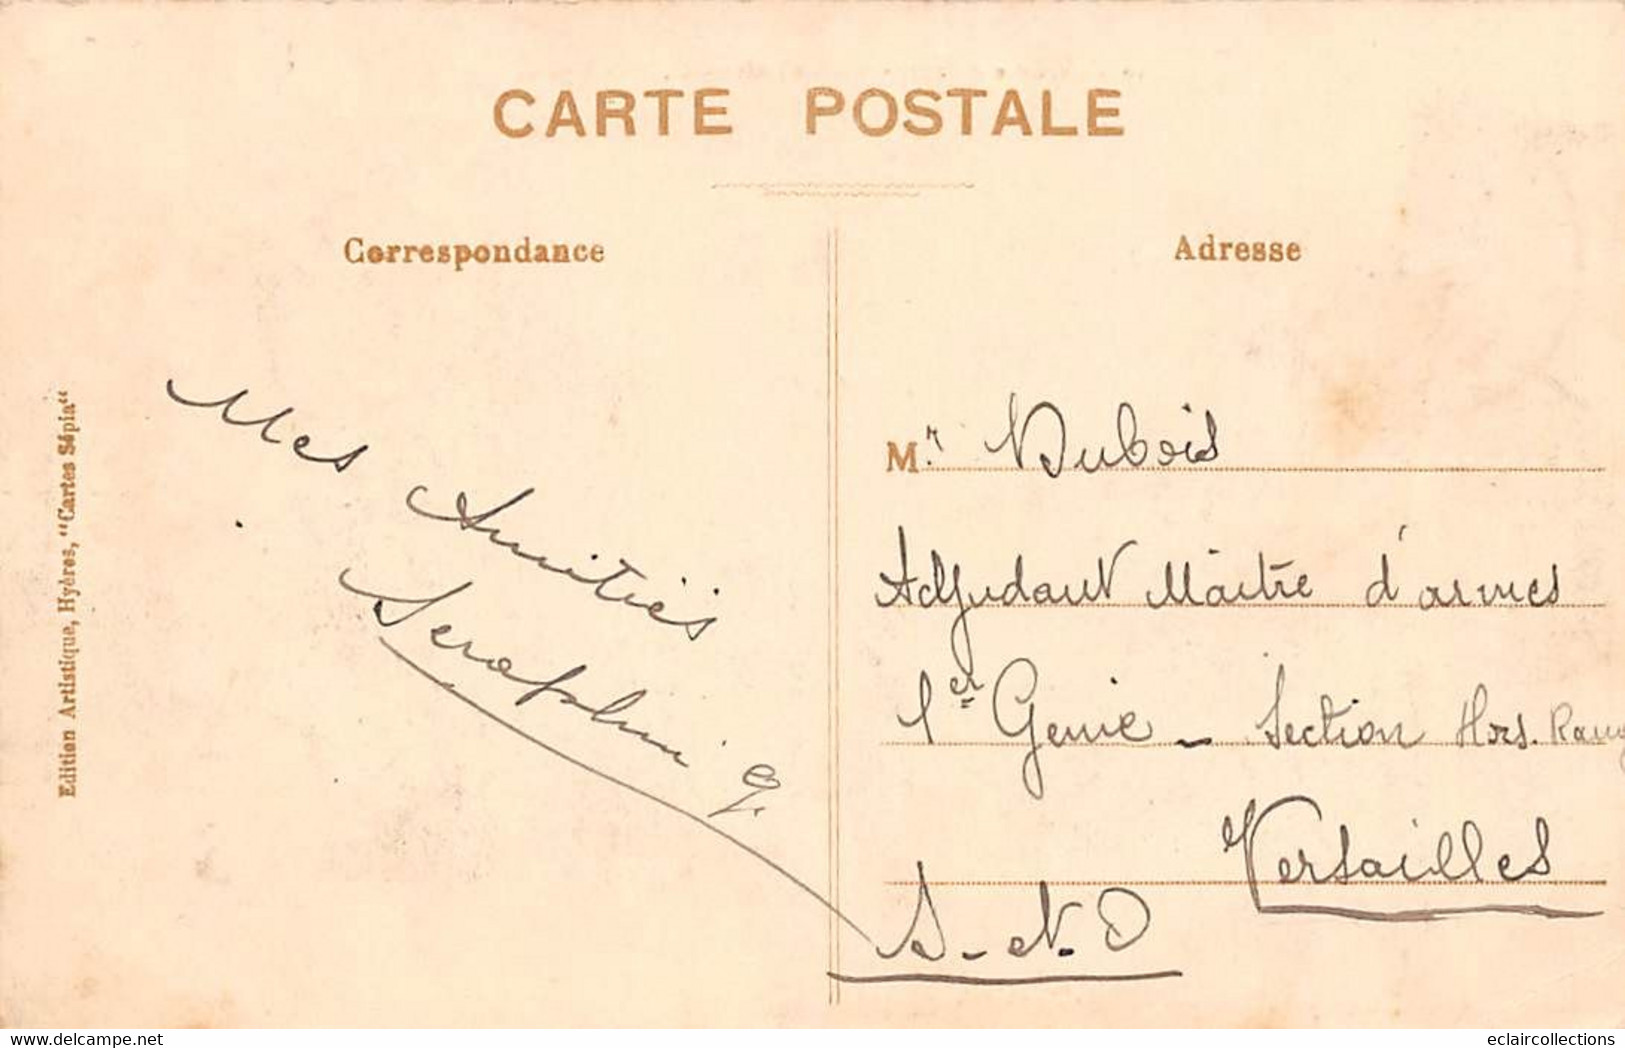 CARTE POSTALE
Correspondance
Adresse
Edition Artistique, Hyères, "Cartes Sépia"
Mes Amitiés
Seraphin G.
M.r Dubois
Adjudant Maître d'armes
1er Genie - Section Hors. Rang
Versailles
S-et-O
eclaircollections